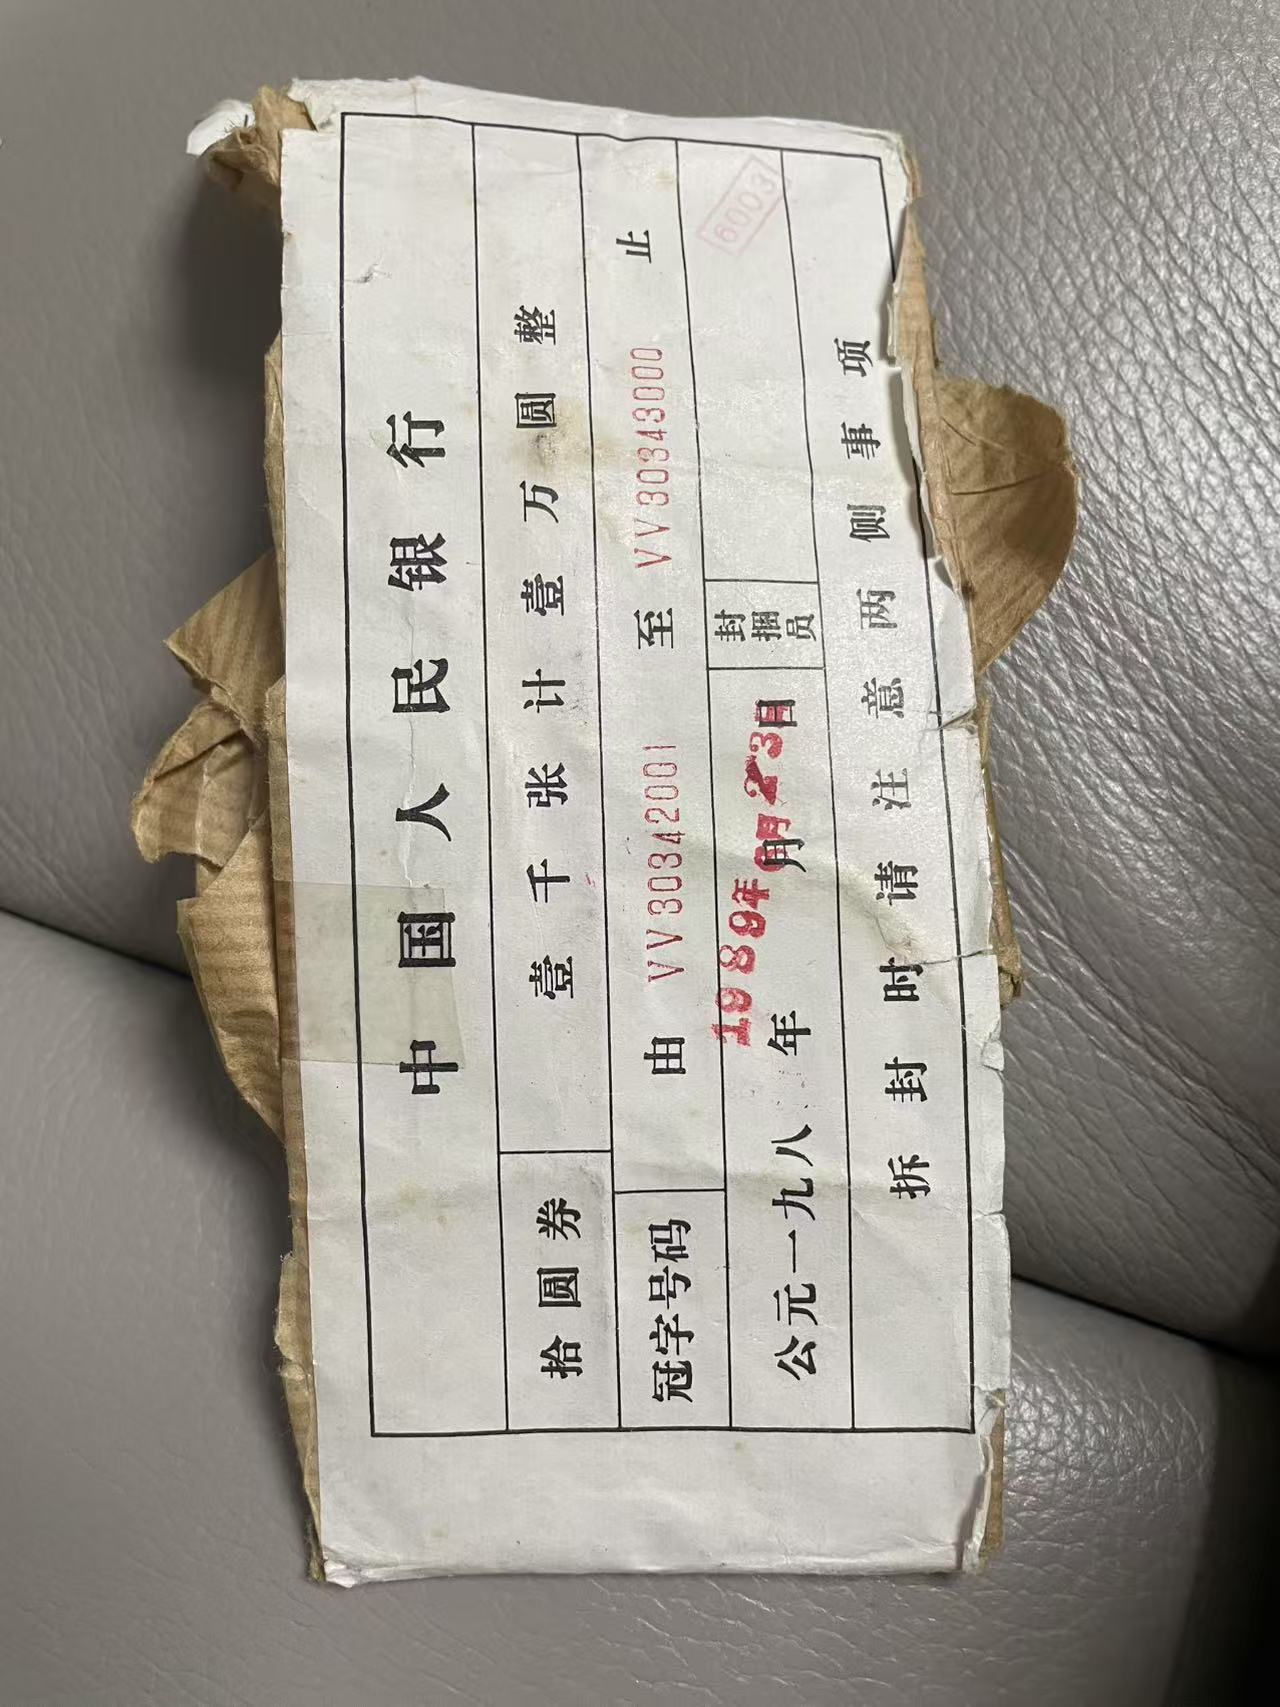 中国人民银行
拾圆券 壹千张计壹万圆整
冠字号码 由 VV30342001 至 VV30343000 止
公元一九八 年 月 日 封捆员
1989年 月23日
6003
拆封时请注意两侧事项